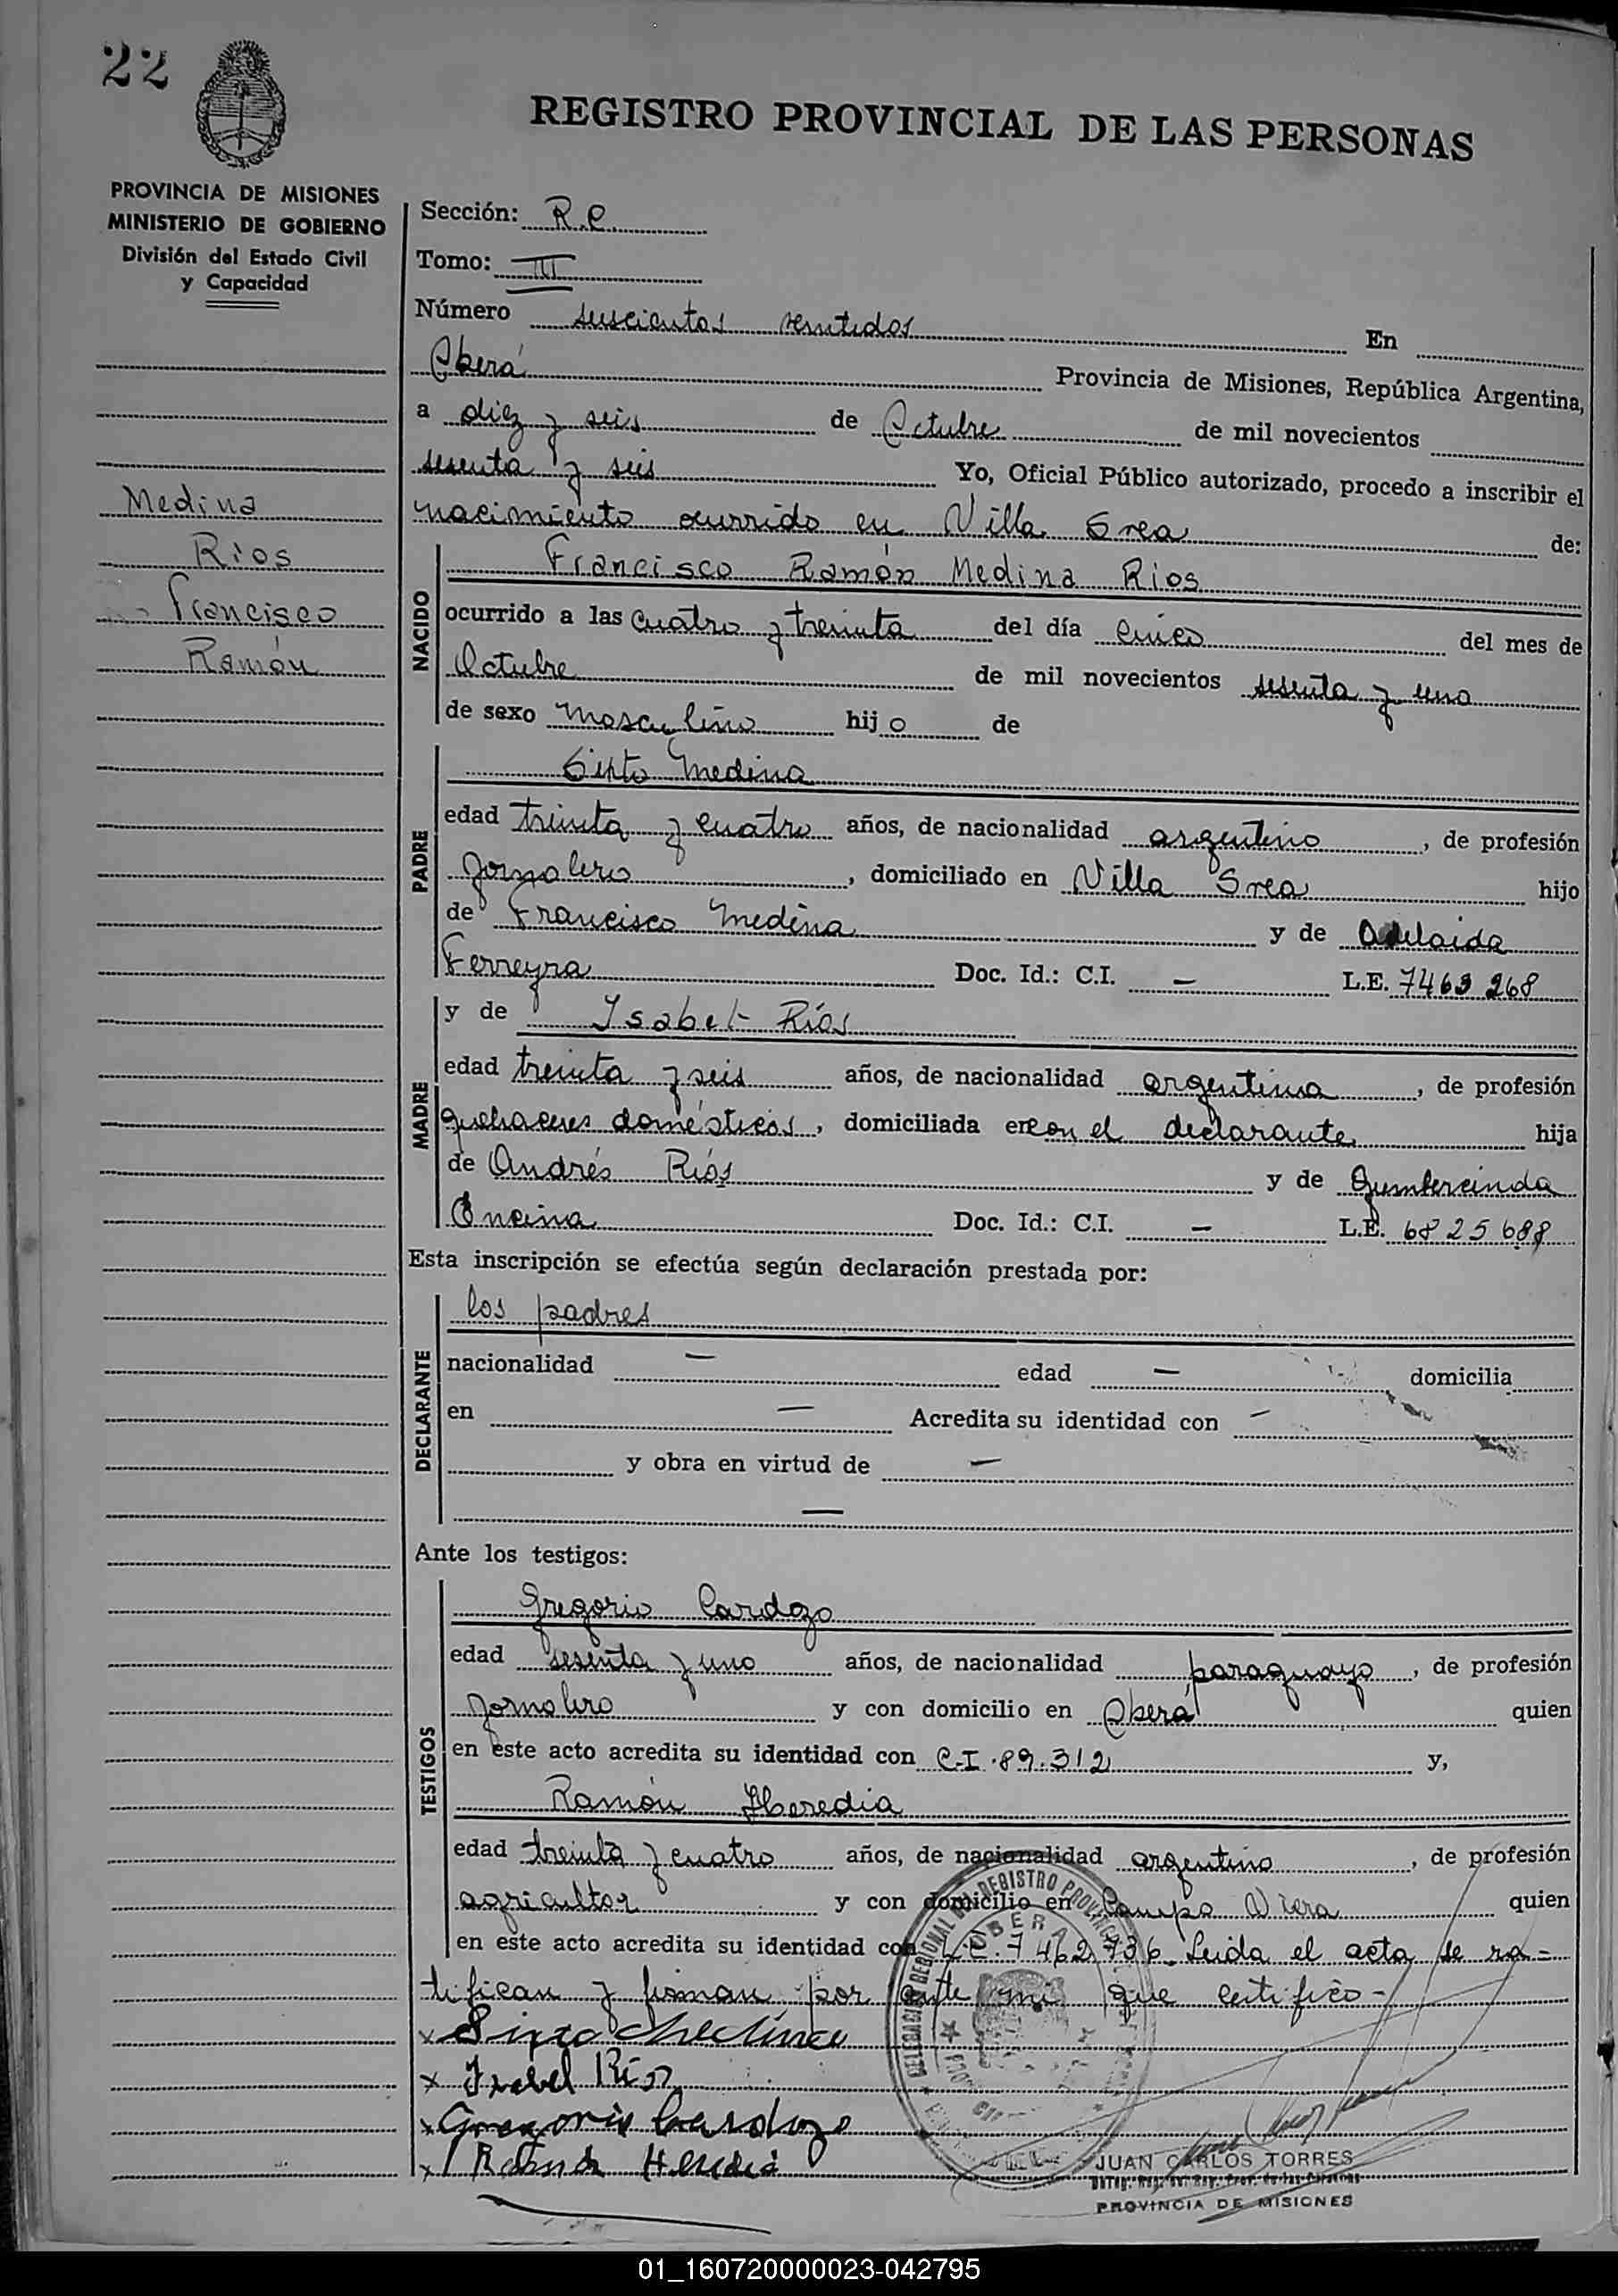 22
REGISTRO PROVINCIAL DE LAS PERSONAS
PROVINCIA DE MISIONES
MINISTERIO DE GOBIERNO
División del Estado Civil
y Capacidad
Medina
Ríos
Francisco
Ramón
Sección: R.C.
Tomo: III
Número En
Oberá Provincia de Misiones, República Argentina,
a diez y seis de Octubre de mil novecientos
sesenta y seis Yo, Oficial Público autorizado, procedo a inscribir el
nacimiento ocurrido en Villa de:
NACIDO
Francisco Ramón Medina Ríos
ocurrido a las cuatro y treinta del día cinco del mes de
Octubre de mil novecientos sesenta y uno
de sexo masculino hijo de
PADRE
Sixto Medina
edad treinta y cuatro años, de nacionalidad argentino, de profesión
Jornalero, domiciliado en Villa hijo
de Francisco Medina y de Adelaida
Ferreyra Doc. Id.: C.I. — L.E. 7463 268
MADRE
y de Isabel Ríos
edad treinta y seis años, de nacionalidad argentina, de profesión
quehaceres domésticos, domiciliada en con el declarante hija
de Andrés Ríos y de Gumercinda
Encina Doc. Id.: C.I. — L.E. 6825688
Esta inscripción se efectúa según declaración prestada por:
DECLARANTE
los padres
nacionalidad — edad — domicilia
en — Acredita su identidad con —
y obra en virtud de —
—
Ante los testigos:
TESTIGOS
Gregorio Cardozo
edad sesenta y uno años, de nacionalidad paraguayo, de profesión
Jornalero y con domicilio en Oberá quien
en este acto acredita su identidad con C.I. 89.312 y,
Ramón Heredia
edad treinta y cuatro años, de nacionalidad argentino, de profesión
agricultor y con domicilio en Campo Viera quien
en este acto acredita su identidad con L.E. 7462736. Leida el acta se ra=
tifican y firman por ante mi que certifico-
x Sixto Medina
x Isabel Ríos
x Gregorio Cardozo
x Ramon Heredia
JUAN CARLOS TORRES
PROVINCIA DE MISIONES
01_160720000023-042795